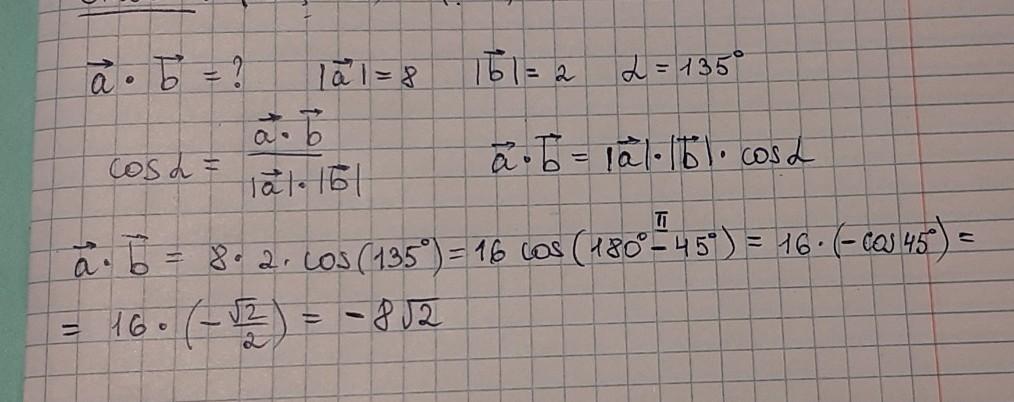 a⃗ · b⃗ = ? |a⃗| = 8 |b⃗| = 2 α = 135°
cos α = (a⃗ · b⃗) / (|a⃗| · |b⃗|) a⃗ · b⃗ = |a⃗| · |b⃗| · cos α
a⃗ · b⃗ = 8 · 2 · cos(135°) = 16 cos(180° − 45°) = 16 · (− cos 45°) =
= 16 · (− √2/2) = − 8√2